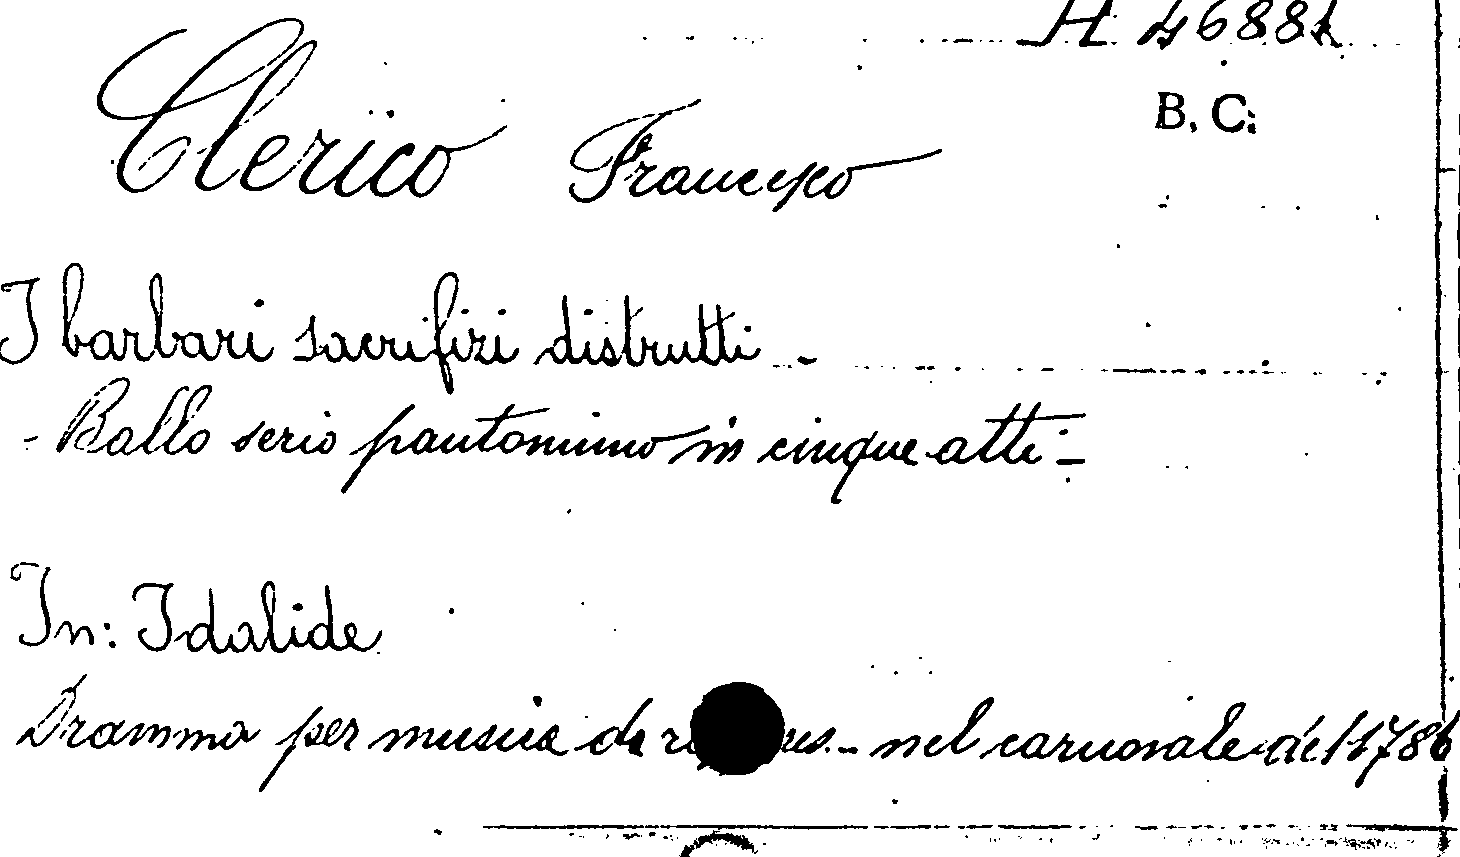 A 4688
B. C.
Clerico Francesco
I barbari sacrifizi distrutti -
- Ballo serio pantomimo in cinque atti -
In: Idalide
Dramma per musica da - nel carnovale del 1786